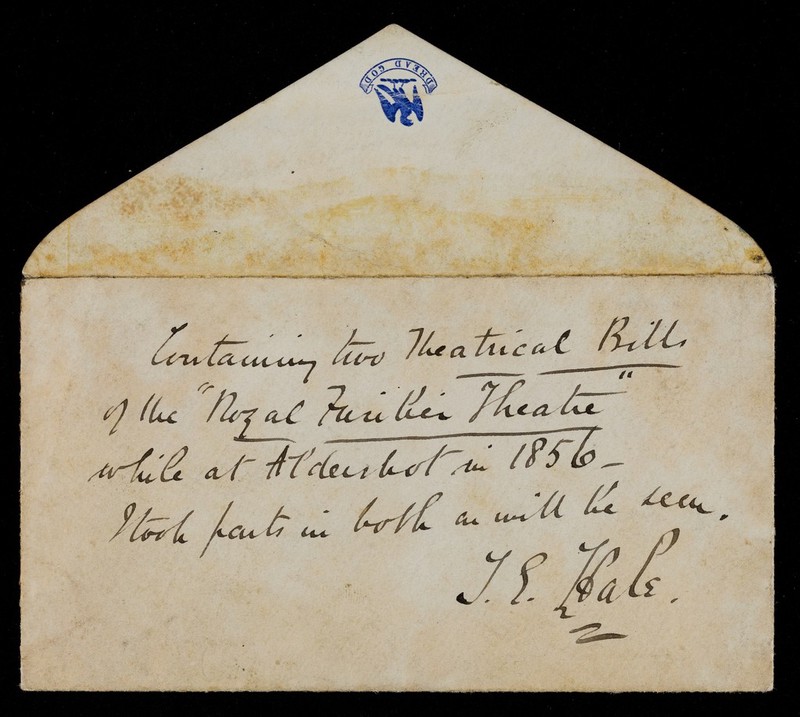 DREAD GOD
Containing two Theatrical Bills
of the "Royal Fusilier Theatre"
while at Aldershot in 1856_
I took parts in both as will be seen.
T. E. Hale.